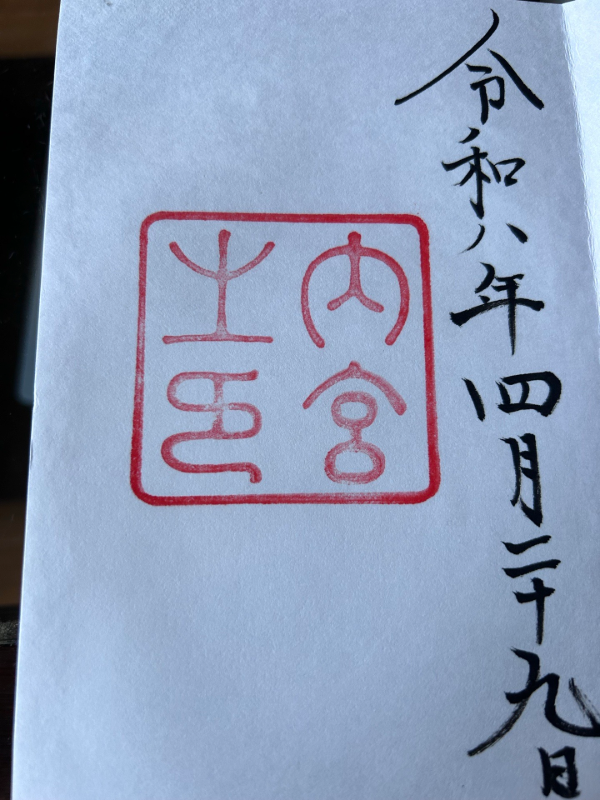 令和八年四月二十九日
内宮
之印